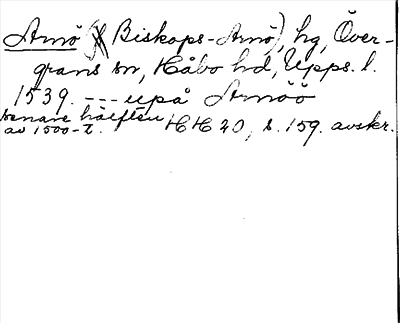 Arnö (Biskops-Arnö), hg, Över-
grans sn, Håbo hd, Upps. l.
1539. --- upå Arnöö
senare hälften
av 1500-t. HH 20, s. 159. avskr.